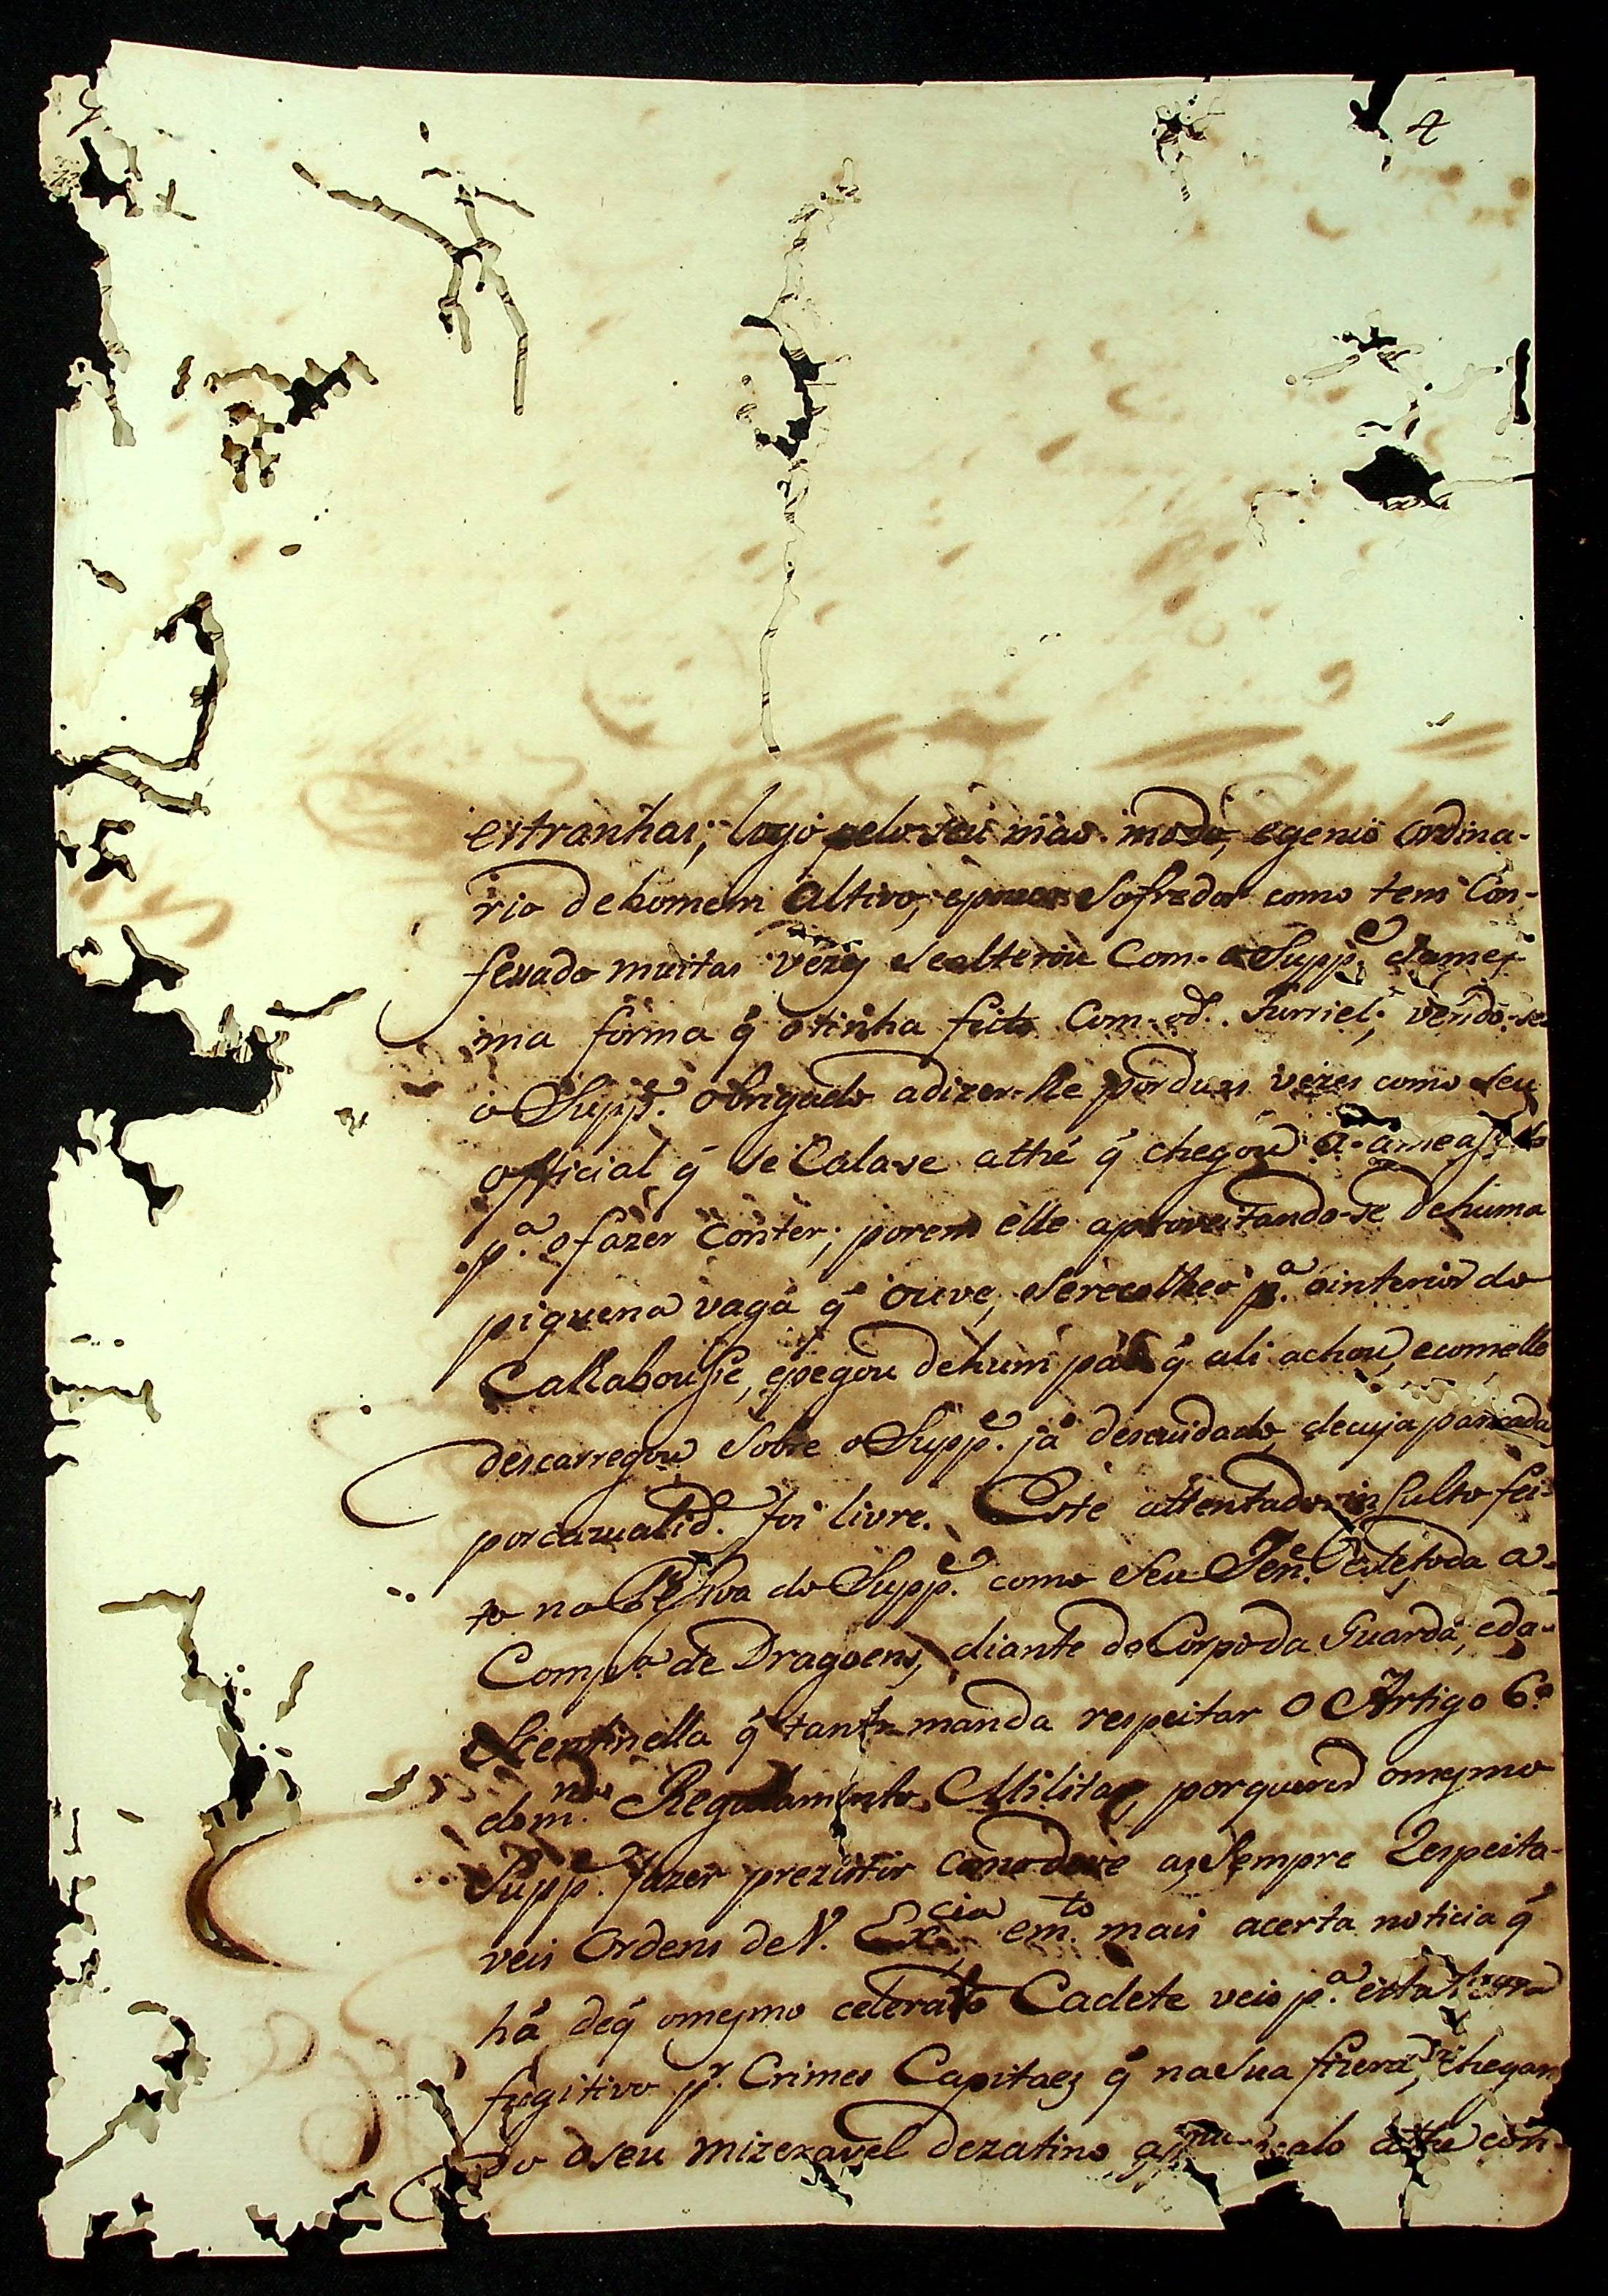 4
extranhas; logo pelo seu máo modo, egenio Ordina-
rio dehomem altivo, epouco Sofredor como tem Con-
fessado muitas vezes sealterou Com o Suppe. dames-
ma forma q̃ otinha feito Com od. Furriel; vendo-se
o Suppe. obrigado adizer-lhe porduas vezes como seu
official q̃ se Calase athé q̃ chegou a ameaſſalo
pa. ofazer Conter; porem elle aproveitando-se dehuma
piquena vaga q̃ ouve, serecolheo pa. ointerior do
Callabouſſe, epegou dehum páo q̃ ali achou, ecomelle
descarregou Sobre oSuppe. já descuidado, decuja pancada
porcazualid.e foi livre. Este attentado insulto fei-
to na Peſsoa do Suppe. como Seu Ten.e edetoda a
Compa. de Dragoens, diante do Corpo da Guarda, eda
Sentinella q̃ tanto manda respeitar o Artigo 6.º
dom.mo Regulamento Militar, porquerer omesmo
Suppe. fazer prezistir como deve as sempre Respeita-
veis Ordens deV. Ex.cia em.to mais acerta noticia q̃
há deq̃ omesmo celerato Cadete veio pa. esta terra
fugitivo pr. Crimes Capitaes q̃ nasua fizera, chegan
do oseu mizeravel dezatino athe con-